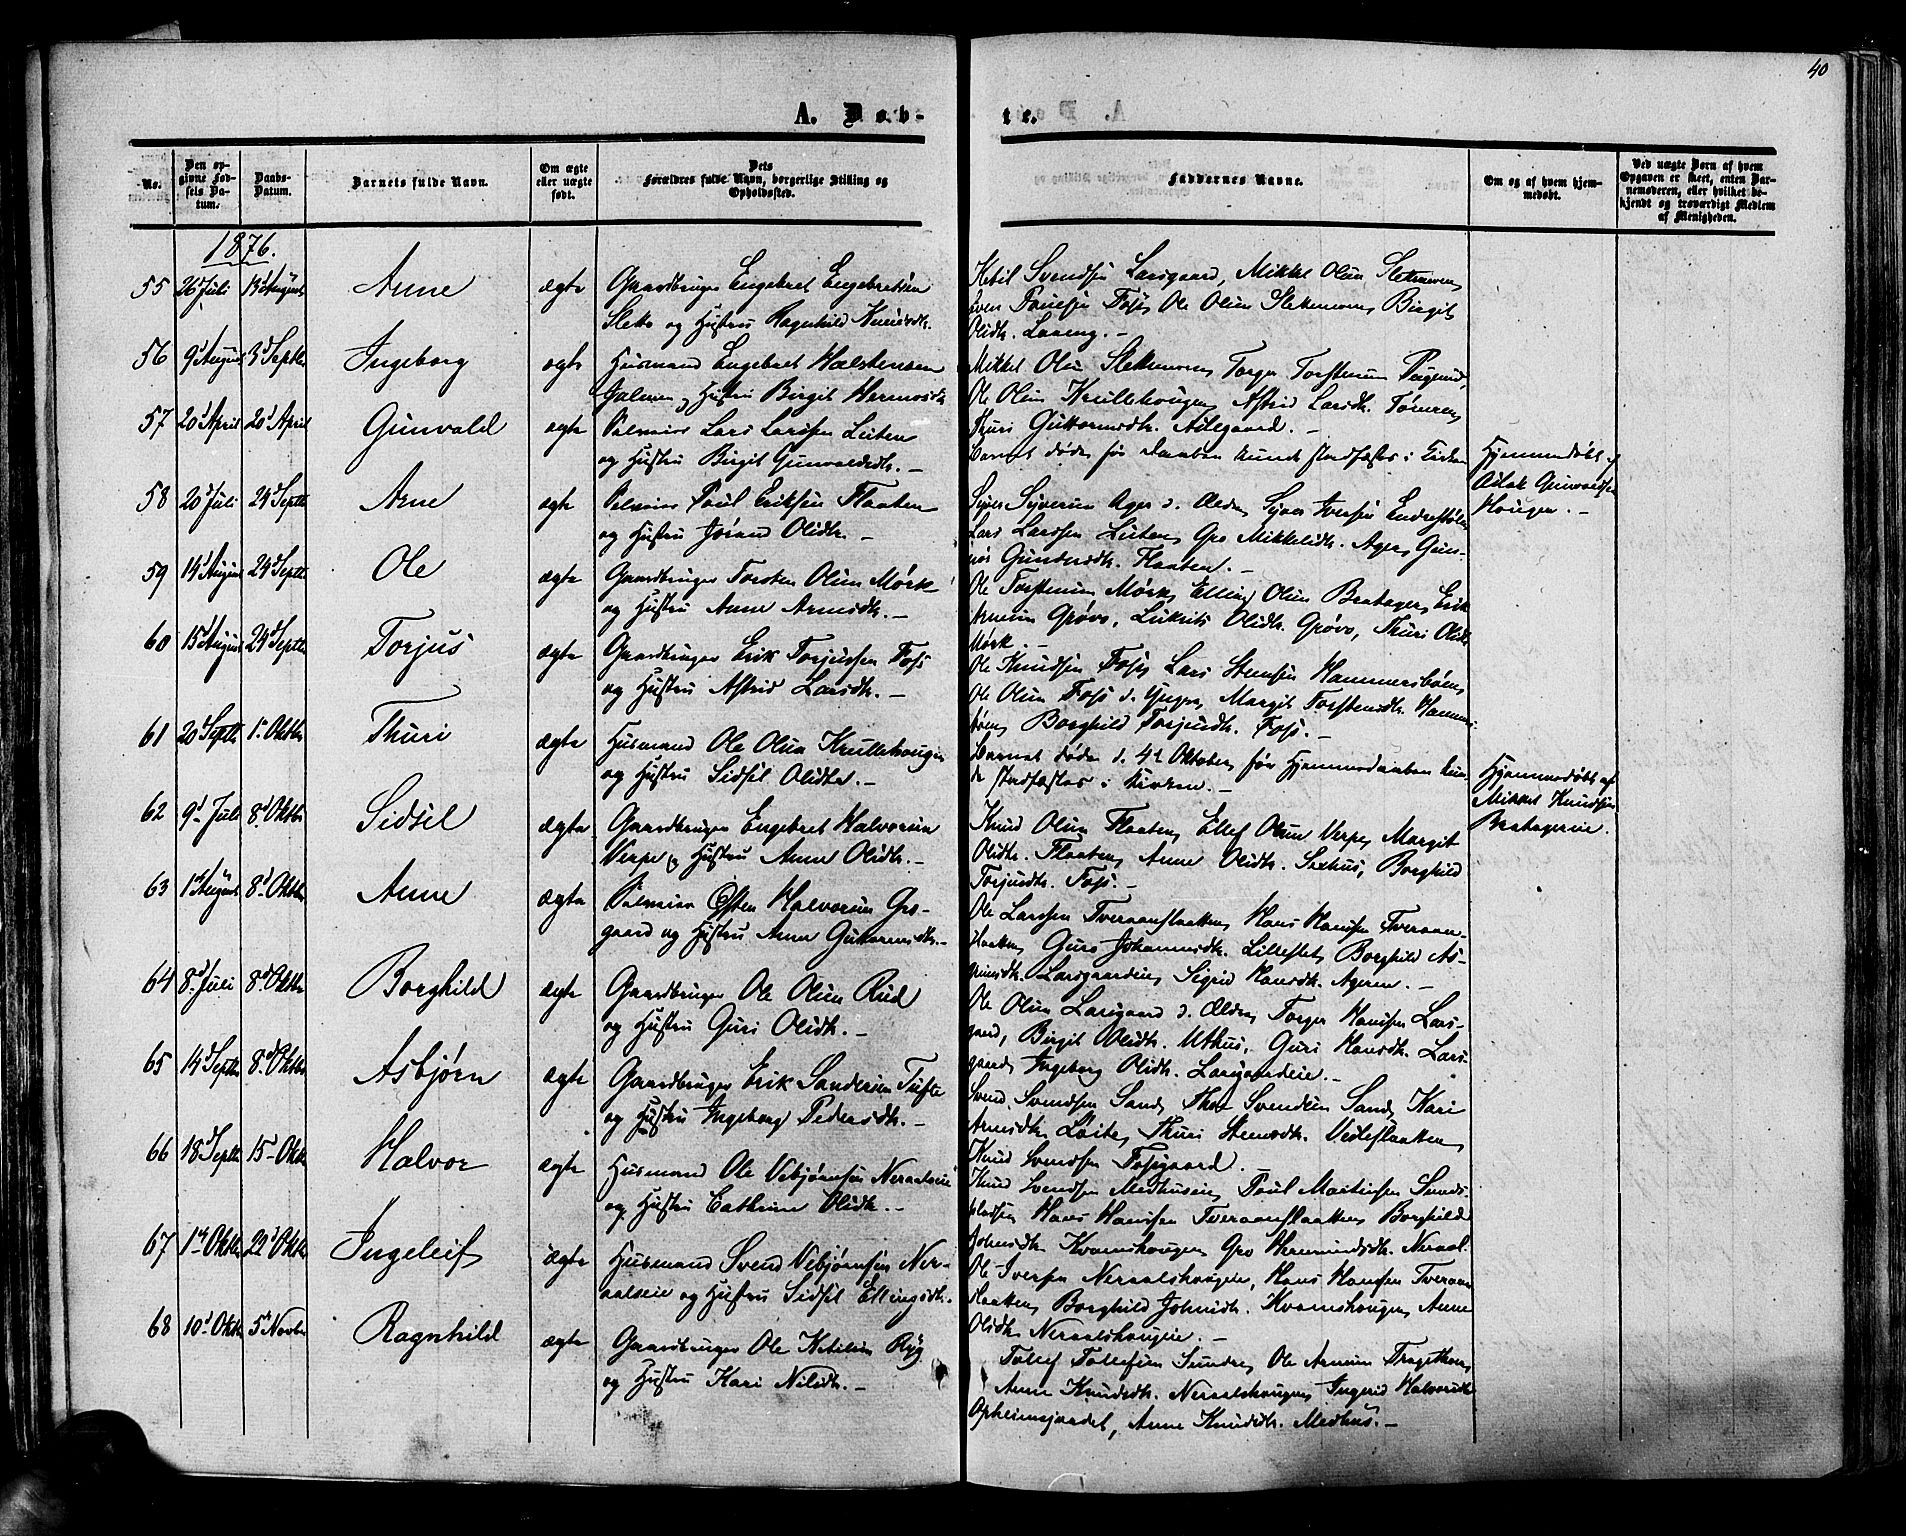 40
A. Dåb-
te.
No.
Den op-
givne Fød-
sels Da-
tum.
Daabs-
Datum.
Barnets fulde Navn.
Om ægte
eller uægte
født.
Dets
Forældres fulde Navn, borgerlige Stilling og
Opholdssted.
Faddernes Navne.
Om og af hvem hjem-
medøbt.
Ved uægte Barn af hvem
Opgaven er skeet, enten Bar-
nemoderen, eller hvilket be-
kjendt og troværdigt Medlem
af Menigheden.
1876.
55 26 Juli 13 August Anne ægte Gaardbruger Engebret Engebretsen
og Hustru Ragnhild Knudsdtr.
Ketil Svendsen Larsgaard, Mikkel Olsen
Ole Olsen Birgit
Olsdtr.
56 9 August 3 Septbr Ingeborg ægte Husmand Engebret Halstensen
og Hustru Birgit Hermosdtr
Mikkel Olsen Torger Torstensen
Ole Olsen Krullehougen, Astrid Larsdtr.
Thuri Guttormsdtr. Ailegaard. -
57 20 April 20 April Gunvald ægte Lars Larssen Leiten
og Hustru Birgit Gunvaldsdtr. -
Barnet døde før Daaben kunde stadfæstes i Kirken
Hjemmedøbt af
Aslak Gunvaldsen
Hougen. -
58 20 Juli 24 Septbr Arne ægte Paul Eriksen Flaaten
og Hustru Jørand Olsdtr. -
Syver Syversen Ager d. Ældre, Syver Iversen Endrestølen
Lars Larssen Leiten, Gro Mikkelsdtr. Ager, Gun-
Gundersdtr. Flaaten. -
59 14 August 24 Septbr Ole ægte Gaardbruger Torsten Olsen Mørk
og Hustru Anne Arnesdtr. -
Ole Torstensen Mørk, Elling Olsen Bratager, Erik
Arnesen Grøvo, Olsdtr. Grøvo, Thuri Olsdtr
Mørk. -
60 15 August 24 Septbr Torjus ægte Gaardbruger Erik Torjussen Foss
og Hustru Astrid Larsdtr. -
Ole Knudsen Foss, Lars Stensen Hammersbøen,
Ole Olsen Foss d. Yngre, Margit Torstensdtr. Hammers-
bøen, Borghild Torjusdtr. Foss. -
61 20 Septbr 1 Oktbr Thuri ægte Husmand Ole Olsen Krullehougen
og Hustru Sidsil Olsdtr. -
Barnet døde d. 4de Oktober, før Hjemmedaaben kun-
de stadfæstes i Kirken. -
Hjemmedøbt af
Mikkel Knudsen
Bratagereie.
62 9 Juli 8 Oktbr Sidsil ægte Gaardbruger Engebret Halvorsen
Verpe og Hustru Anne Olsdtr. -
Knud Olsen Flaaten, Ellef Olsen Verpe, Margit
Olsdtr. Flaaten, Anne Olsdtr. Borghild
Torjusdtr. Foss. -
63 1 August 8 Oktbr Anne ægte Østen Halvorsen Gro-
gaard og Hustru Anne Guttormsdtr. -
Ole Larssen Tveraanflaaten, Hans Hansen Tveraan-
flaaten, Guro Johannesdtr. Lilleslet, Borghild As-
grimsdtr. Larsgaardeie, Sigrid Hansdtr. Ageren. -
64 8 Juli 8 Oktbr Borghild ægte Gaardbruger Ole Olsen Rud
og Hustru Guri Olsdtr. -
Ole Olsen Larsgaard d. Ældre, Torger Hansen Lars-
gaard, Birgit Olsdtr. Uthus, Guri Hansdtr. Lars-
gaard, Ingeborg Olsdtr. Larsgaardeie. -
65 14 Septbr 8 Oktbr Asbjørn ægte Gaardbruger Erik Sandersen Tufte
og Hustru Ingeborg Pedersdtr. -
Svend Svendsen Sand, Thor Svendsen Sand, Kari
Arnesdtr. Løite, Thuri Stensdtr. Vedleflaaten,
Knud Svendsen Fossgaard. -
66 18 Septbr 15 Oktbr Halvor ægte Husmand Ole Vebjørnsen Neraaleie
og Hustru Cathrine Olsdtr. -
Knud Svendsen Medhuseie, Paul Martinsen Sunds-
Hans Hansen Tveraanflaaten, Borghild
Johnsdtr. Kvamshougen, Gro Hermundsdtr. Neraal.
67 1 Oktbr 22 Oktbr Ingeleif ægte Husmand Svend Vebjørnsen Ner-
aaleie og Hustru Sidsil Ellingsdtr.
Ole Iversen Neraalshougen, Hans Hansen Tveraan-
flaaten, Borghild Johnsdtr. Kvamshougen, Anne
Olsdtr. Neraalshougeie. -
68 10 Oktbr 5 Novbr Ragnhild ægte Gaardbruger Ole Ketilsen Ryg
og Hustru Kari Nilsdtr. -
Tollef Tollefsen Sundre, Ole Arnesen Tragethon,
Anne Knudsdtr. Neraalshougen, Ingrid Halvorsdtr
Opheimsjordet, Anne Knudsdtr. Medhus. -